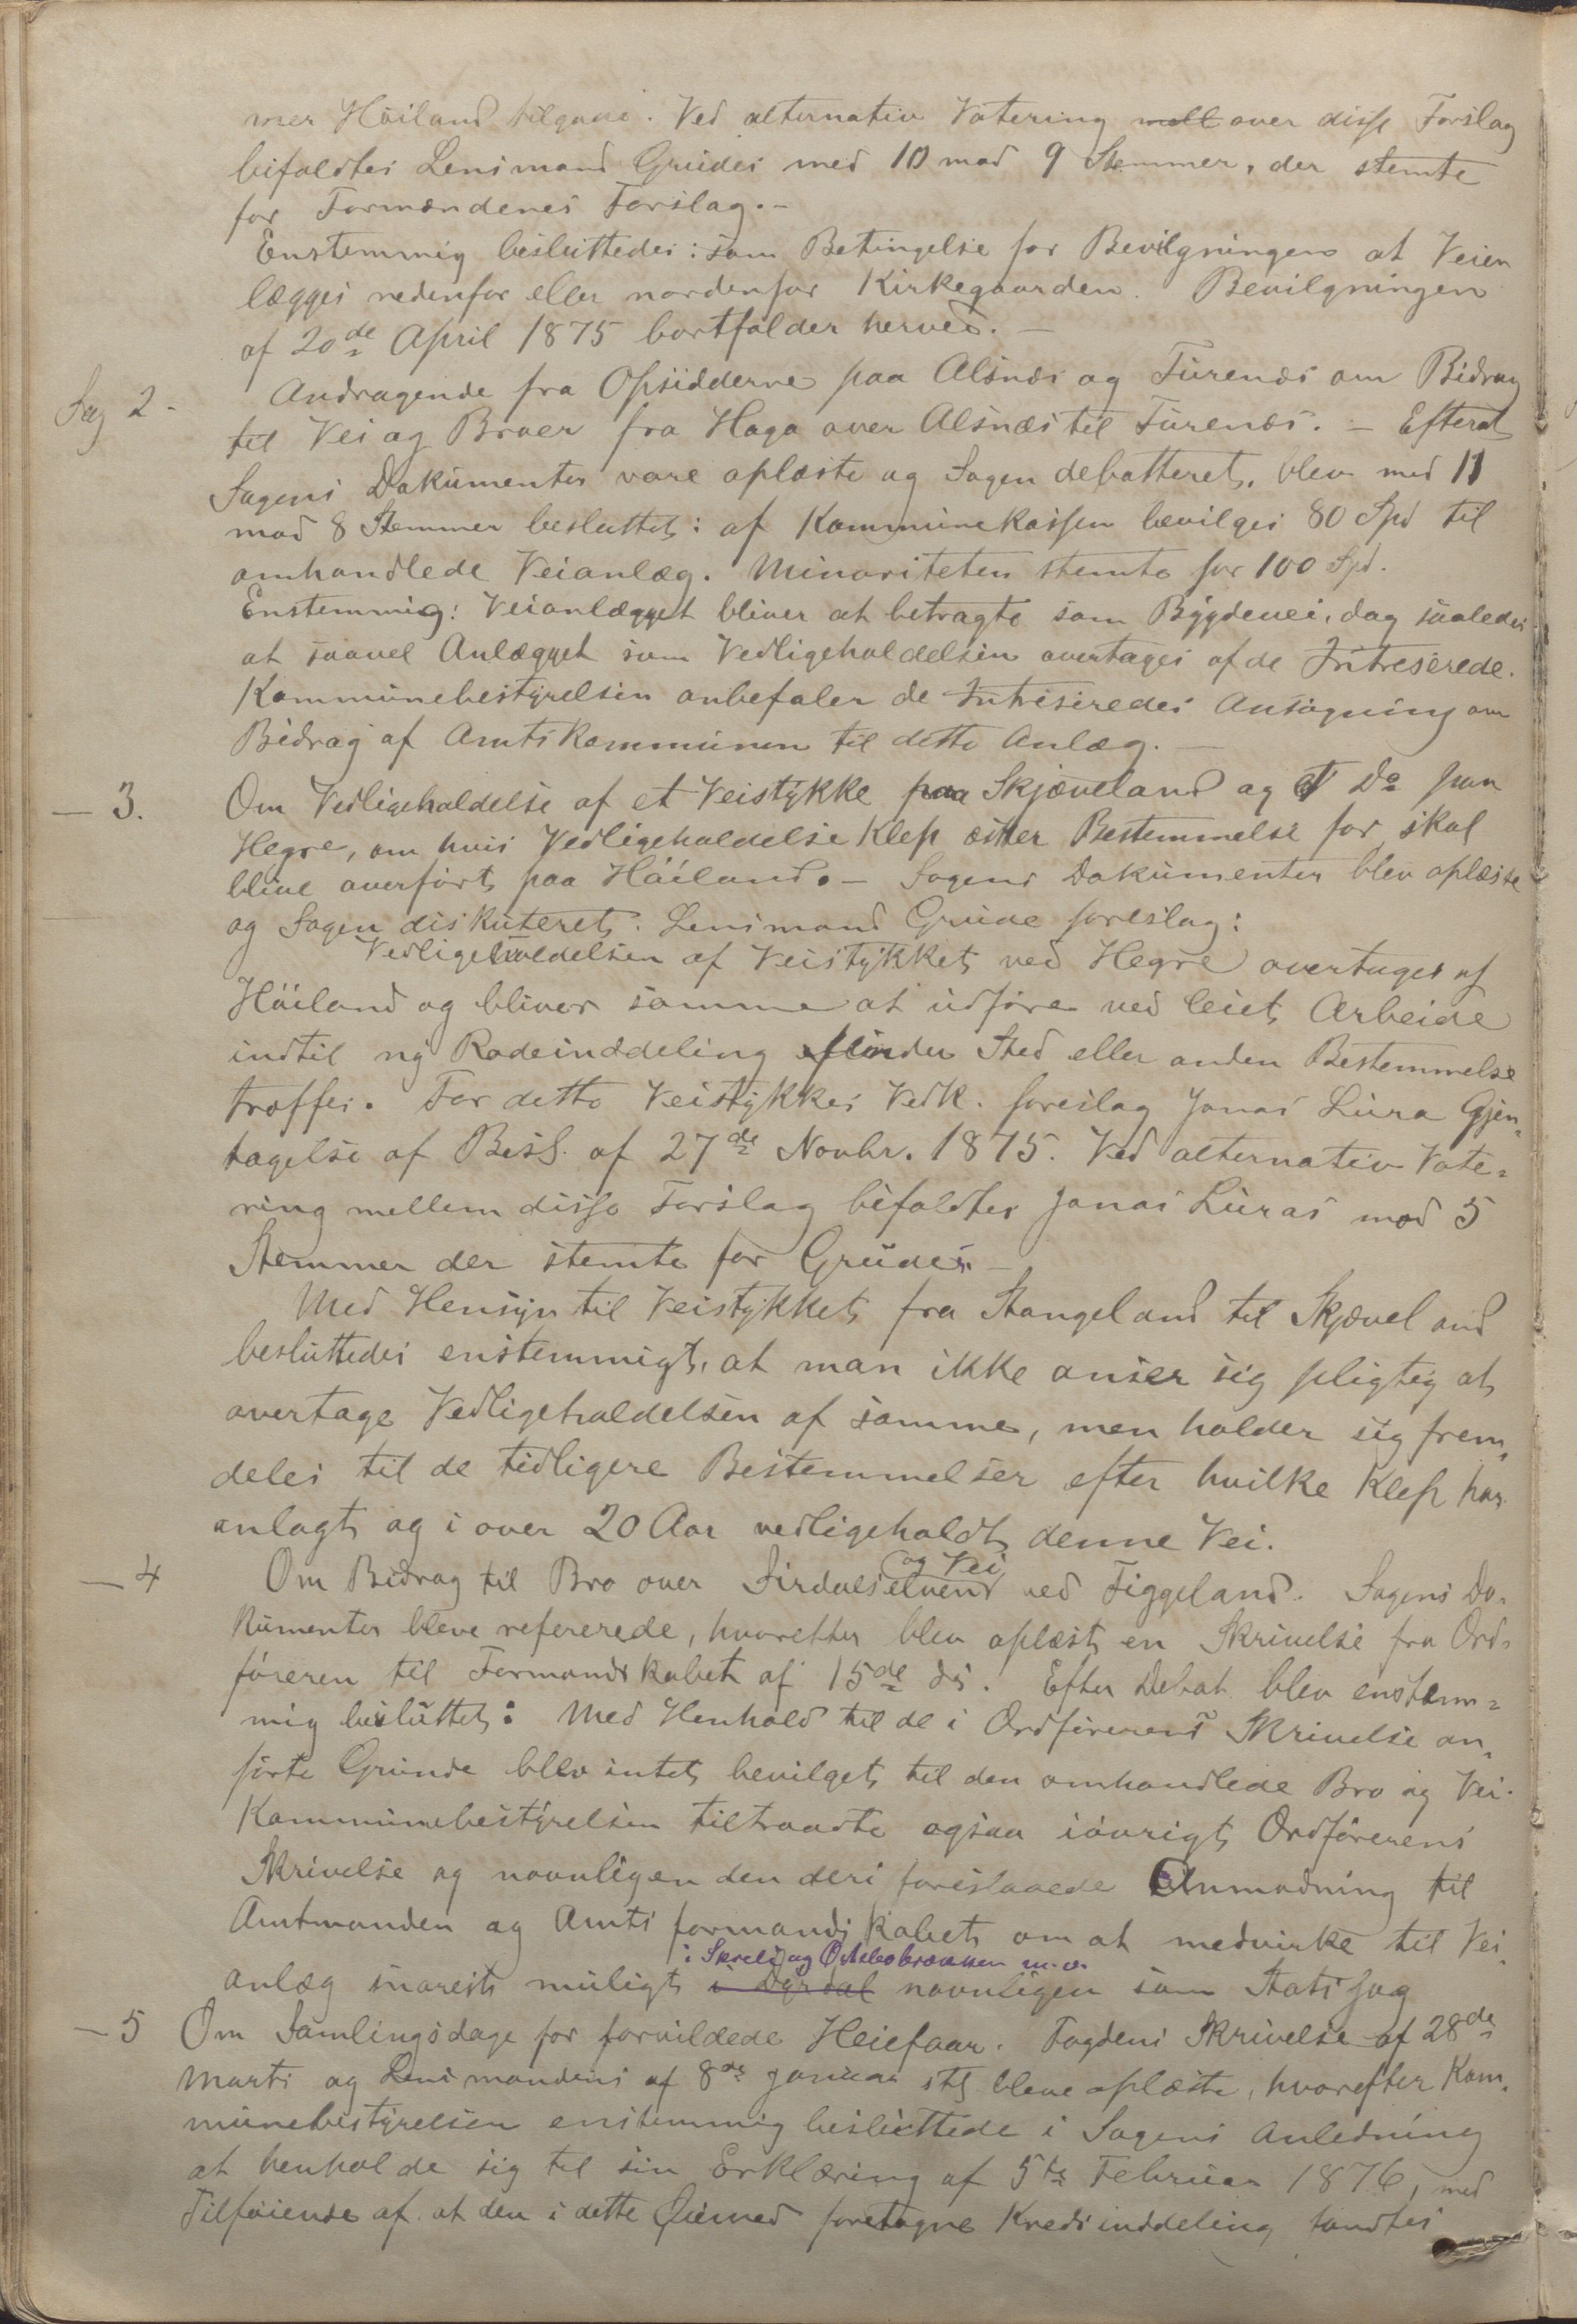 mer Höiland tilgave. Ved alternativ Votering mell over disse Forslag
bifaldtes Lensmand Grudes med 10 mod 9 Stemmer, der stemte
for Formændenes Forslag.-
Enstemmig besluttedes: som Betingelse for Bevilgningen at Veien
lægges nedenfor eller nordenfor Kirkegaarden. Bevilgningen
af 20de April 1875 bortfalder herved. -
Sag 2 - Andragende fra Opsidderne paa Alsnæs og Furenæs om Bidrag
til Vei og Broer fra Haga over Alsnæs til Furenæs. - Efterat
Sagens Dokumenter vare oplæste og Sagen debatteret, blev med 11
mod 8 Stemmer besluttet: af Kommunekassen bevilges 80 Spd til
omhandlede Veianlæg. Minoriteten stemte for 100 Spd.
Enstemmig: Veianlægget bliver at betragte som Bygdevei, dog saaledes
at saavel Anlægget som Vedligeholdelsen overtages af de Intreserede.
Kommunebestyrelsen anbefaler de Intreseredes Ansøgning om
Bidrag af Amtskommunen til dette Anlæg. -
- 3. Om Vedligeholdelse af et Veistykke paa Skjæveland og et Do paa
Hegre, om hvis Vedligeholdelse Klep æsker Bestemmelse for skal
blive overført paa Höiland. - Sagens Dokumenter blev oplæste
og Sagen diskuteret. Lensmand Grude foreslog:
Vedligeholdelsen af Veistykket ved Hegre overtages af
Höiland og bliver samme at udføre ved leiet Arbeide
indtil ny Rodeinddeling finder Sted eller anden Bestemmelse
træffes. For dette Veistykkes Vedk. foreslog Jonas Lura Gjen-
tagelse af Besl. af 27de Novbr. 1875. Ved alternativ Vote-
ring mellem disse Forslag bifaldtes Jonas Luras mod 5
Stemmer der stemte for Grudes. -
Med Hensyn til Veistykket fra Stangeland til Skjæveland
besluttedes enstemmigt, at man ikke anser sig pligtig at
overtage Vedligeholdelsen af samme, men holder sig frem-
deles til de tidligere Bestemmelser efter hvilke Klep har
anlagt og i over 20 Aar vedligeholdt denne Vei.
- 4 Om Bidrag til Bro over Sirdalselven og Vei ved Figgeland. Sagens Do-
kumenter bleve refererede, hvorefter blev oplæst en Skrivelse fra Ord-
føreren til Formandskabet af 15de ds. Efter Debat blev enstem-
mig besluttet: Med Henhold til de i Ordførerens Skrivelse an-
førte Grunde blev intet bevilget til den omhandlede Bro og Vei.
Kommunebestyrelsen tiltraadte ogsaa iøvrigt Ordførerens
Skrivelse og navnligen den deri foreslaaede Anmodning til
Amtmanden og Amtsformandskabet om at medvirke til Vei-
i Skreli og m.v.
anlæg snarest muligt i Dyrdal navnligen som Statssag
- 5 Om Samlingsdage for forvildede Heiefaar. Fogdens Skrivelse af 28de
Marts og Lensmandens af 8de Januar sth bleve oplæste, hvorefter Kom-
munebestyrelsen enstemmig besluttede i Sagens Anledning
at henholde sig til sin Erklæring af 5te Februar 1876, med
Tilføiende af at den i dette Øiemed foretagne Kredsinddeling fandtes